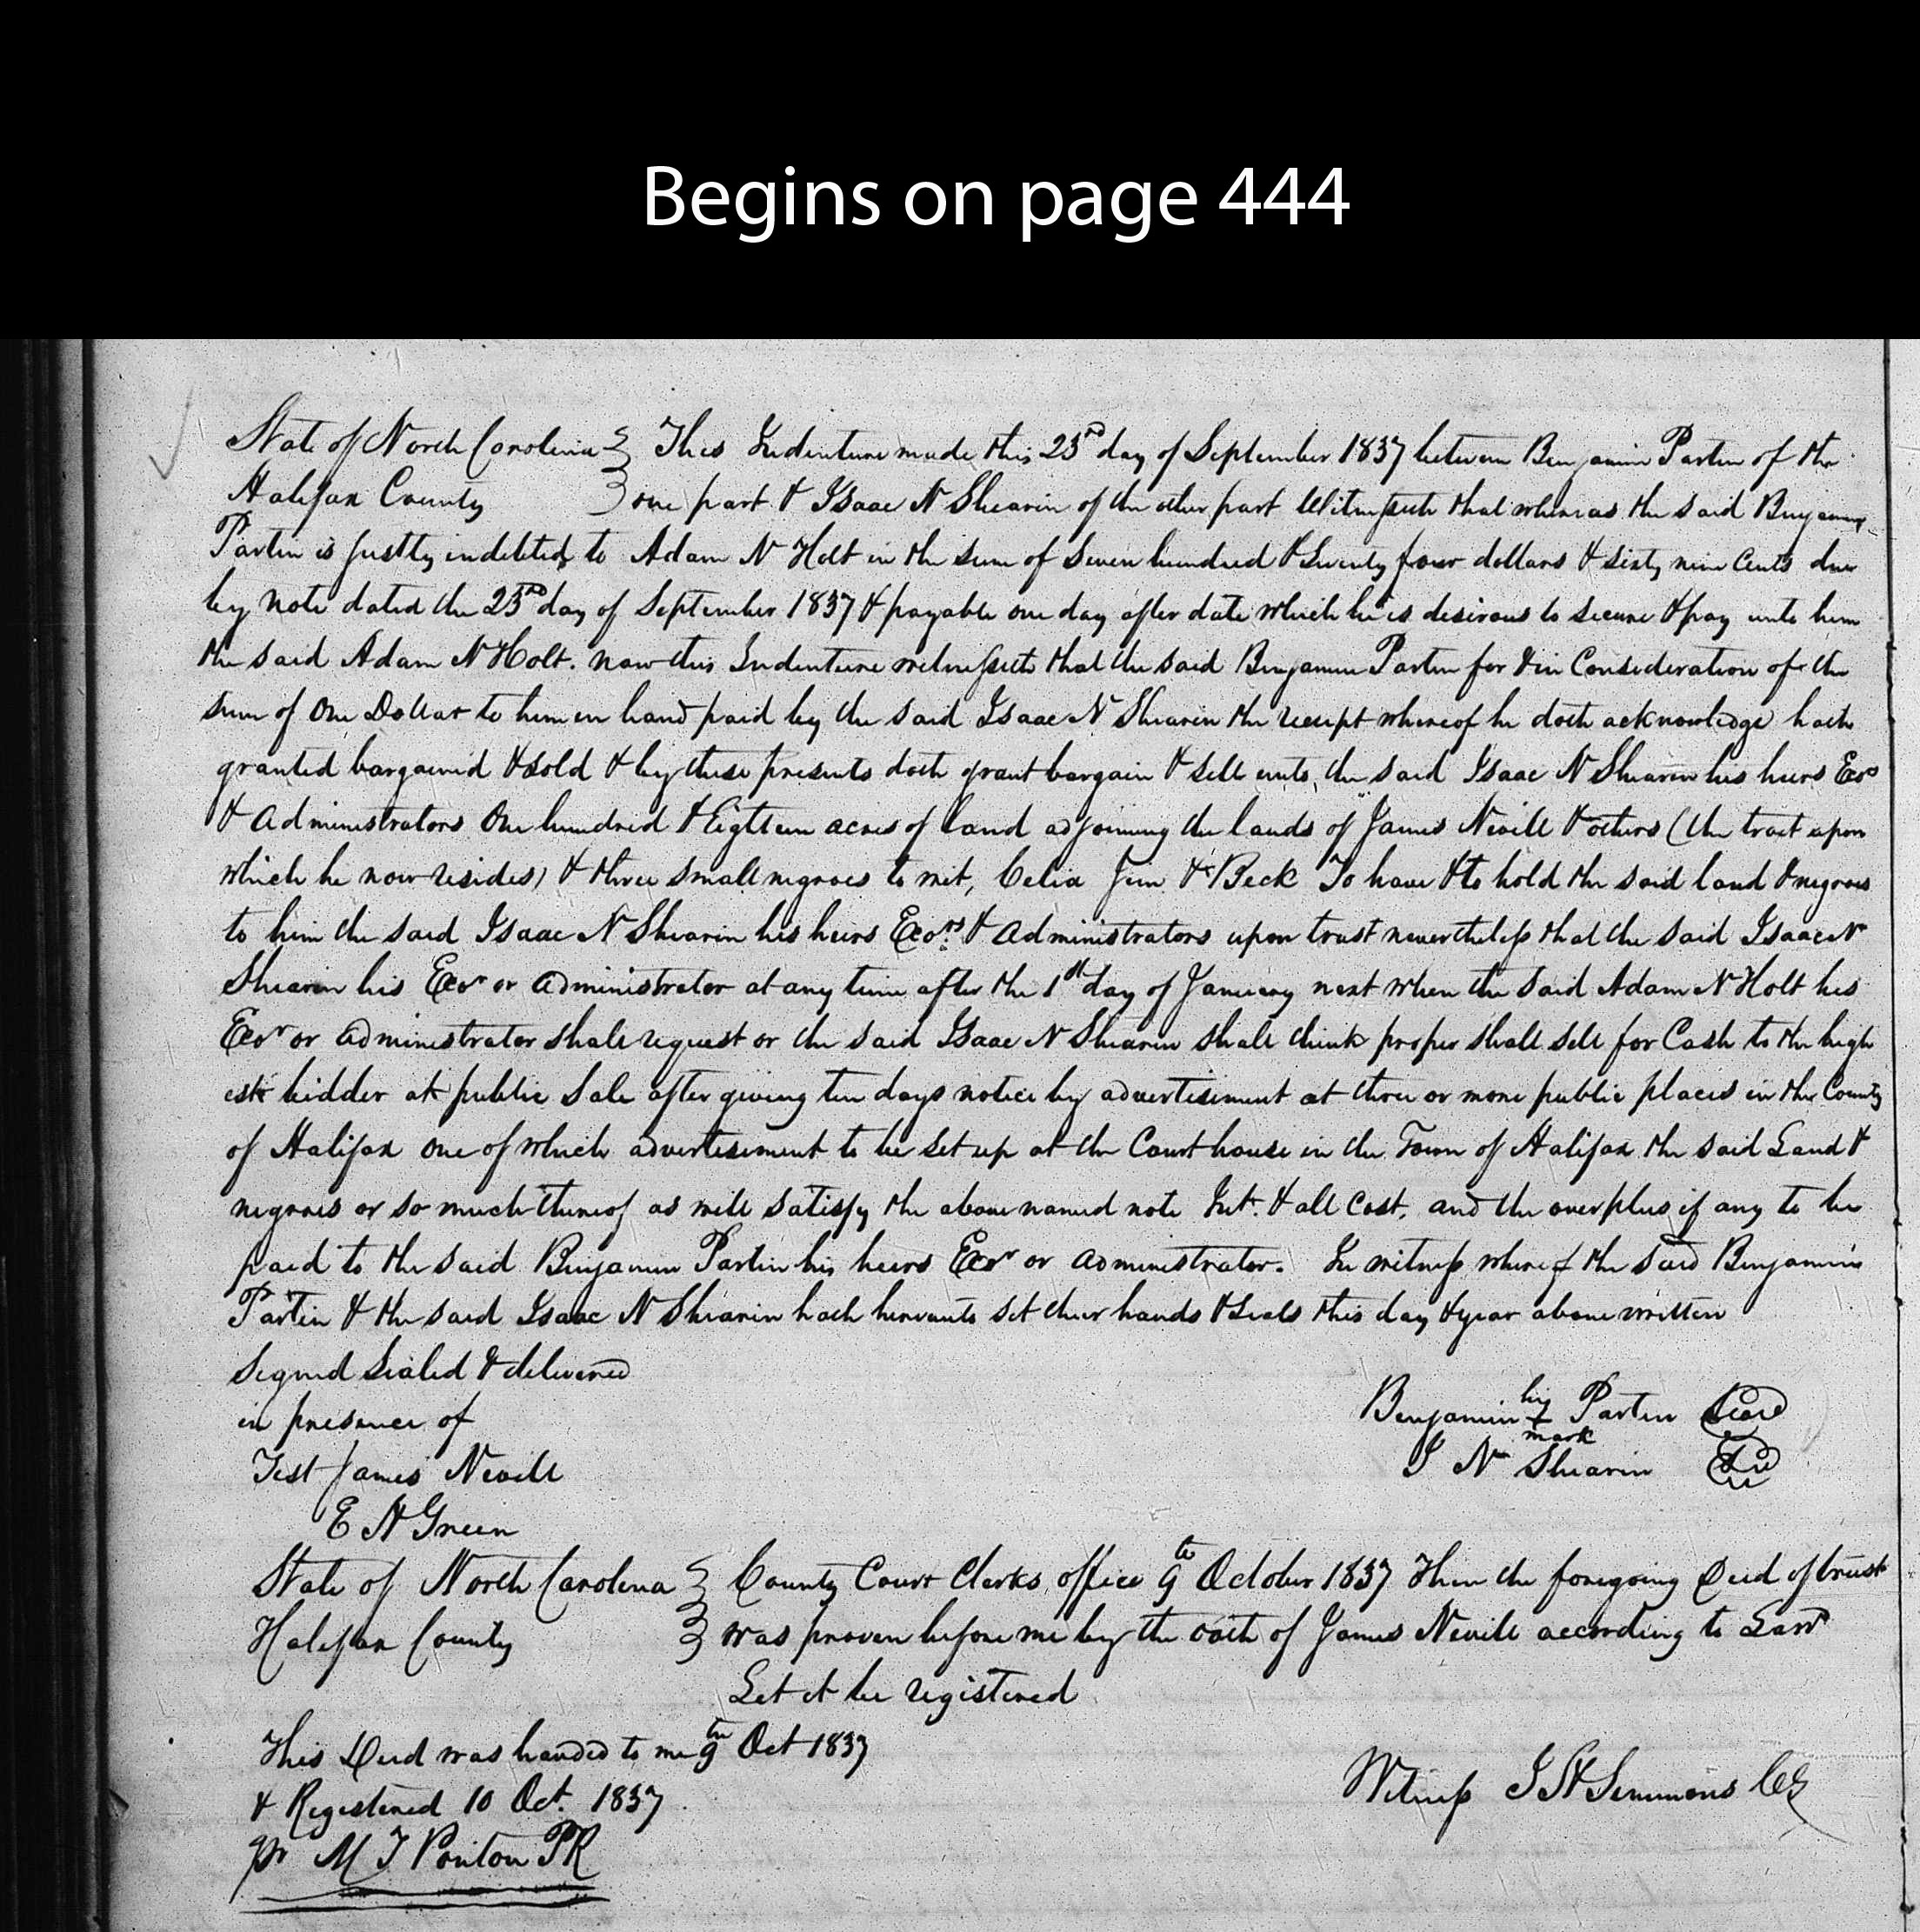 Begins on page 444
State of North Carolina } This Indenture made this 23rd day of September 1837 between Benjamin Partin of the
Halifax County } one part & Isaac N Shearin of the other part Witnesseth that whereas the said Benjamin
Partin is justly indebted to Adam N Holt in the sum of Seven hundred & Twenty four dollars & sixty nine Cents due
by note dated the 23rd day of September 1837 & payable one day after date which he is desirous to secure & pay unto him
the said Adam N Holt. now this Indenture witnesseth that the said Benjamin Partin for & in Consideration of the
sum of One Dollar to him in hand paid by the said Isaac N Shearin the receipt whereof he doth acknowledge hath
granted bargained & sold & by these presents doth grant bargain & sell unto the said Isaac N Shearin his heirs Exors
& administrators One hundred & Eighteen acres of land adjoining the lands of James Nevill & others (the tract upon
which he now resides) & three small negroes to wit, Celia Jim & Beck To have & to hold the said land & negroes
to him the said Isaac N Shearin his heirs Exors & administrators upon trust nevertheless that the said Isaac N
Shearin his Exor or administrator at any time after the 1st day of January next when the said Adam N Holt his
Exor or administrator shall request or the said Isaac N Shearin shall think proper shall sell for Cash to the high
est bidder at public Sale after giving ten days notice by advertisement at three or more public places in the County
of Halifax one of which advertisement to be set up at the Court house in the Town of Halifax the said Land &
negroes or so much thereof as will satisfy the above named note Int. & all Cost, and the overplus if any to be
paid to the said Benjamin Partin his heirs Exor or administrator. In witness whereof the said Benjamin
Partin & the said Isaac N Shearin hath hereunto set their hands & seals this day & year above written
Signed Sealed & delivered
in presence of
Benjamin his + mark Partin Seal
Test James Nevill
I N Shearin
E H Green
State of North Carolina } County Court Clerks office 9th October 1837 Then the foregoing Deed of trust
Halifax County } was proven before me by the oath of James Nevill according to Law
Let it be registered
This Deed was handed to me 9th Oct 1837
Witness I H Simmons Clk
& Registered 10 Oct. 1837
pr M T Ponton PR